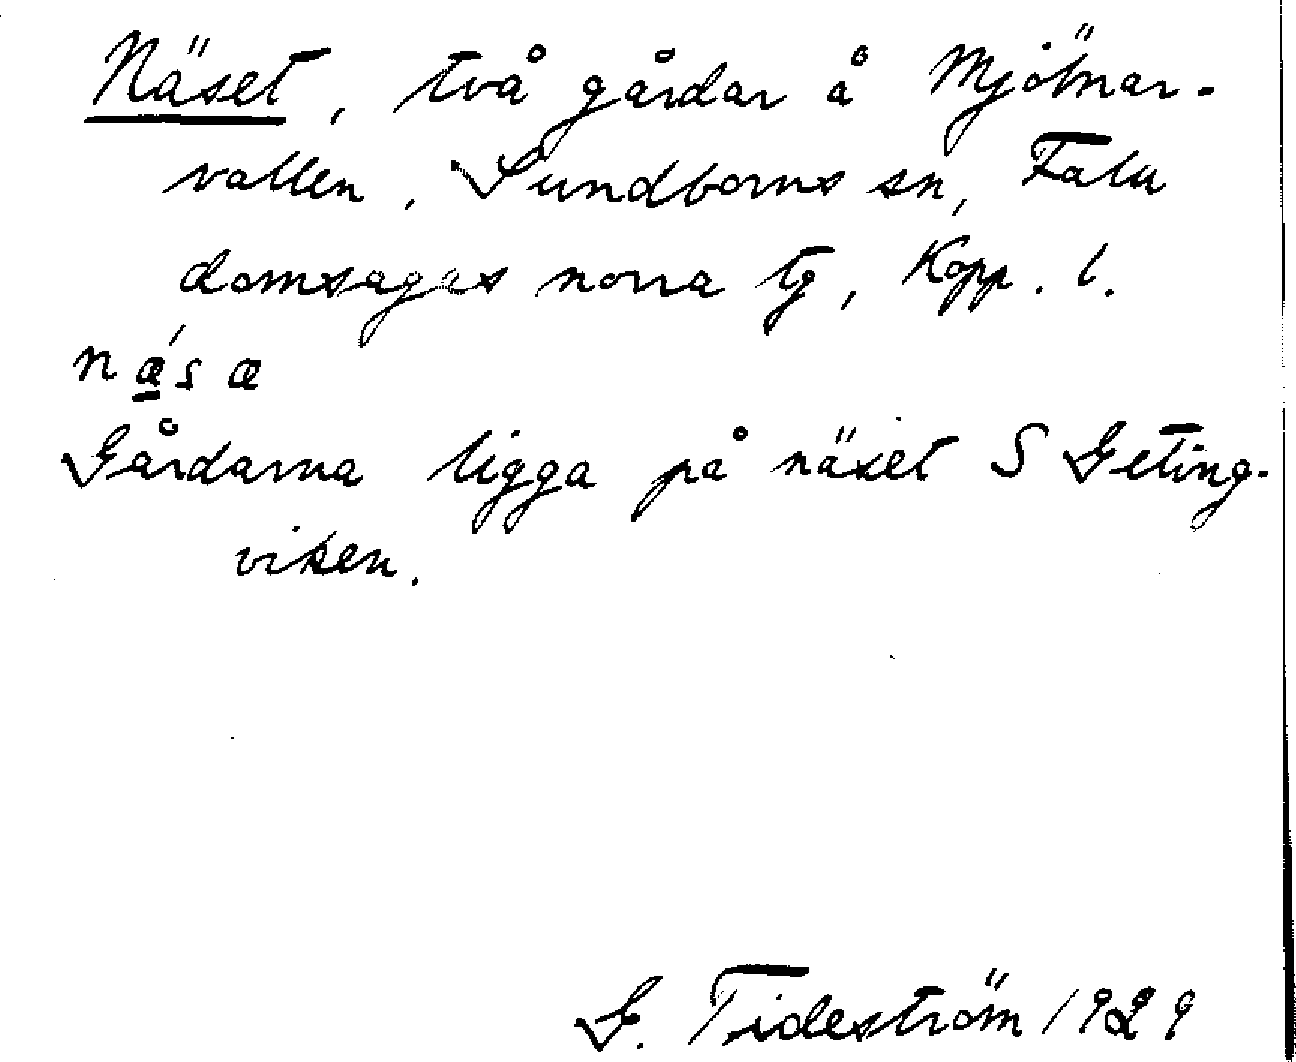 Näset, två gårdar å Mjölnar-
vallen, Sundborns sn, Falu
domsagas norra tg, Kopp. l.
nǽ̲sæ
Gårdarna ligga på näset S Geting-
viken.
G. Tideström 1929